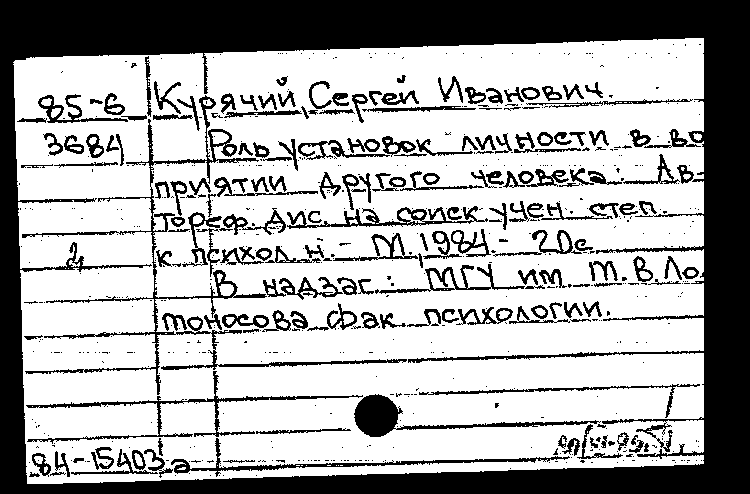 85-6 Курячий, Сергей Иванович.
3684 Роль установок личности в во
приятии другого человека: Ав-
тореф. дис. на соиск учен. степ.
к психол. н. - М, 1984. - 20с
В надзаг: МГУ им М. В. Ло
моносова фак. психологии.
84-15403а